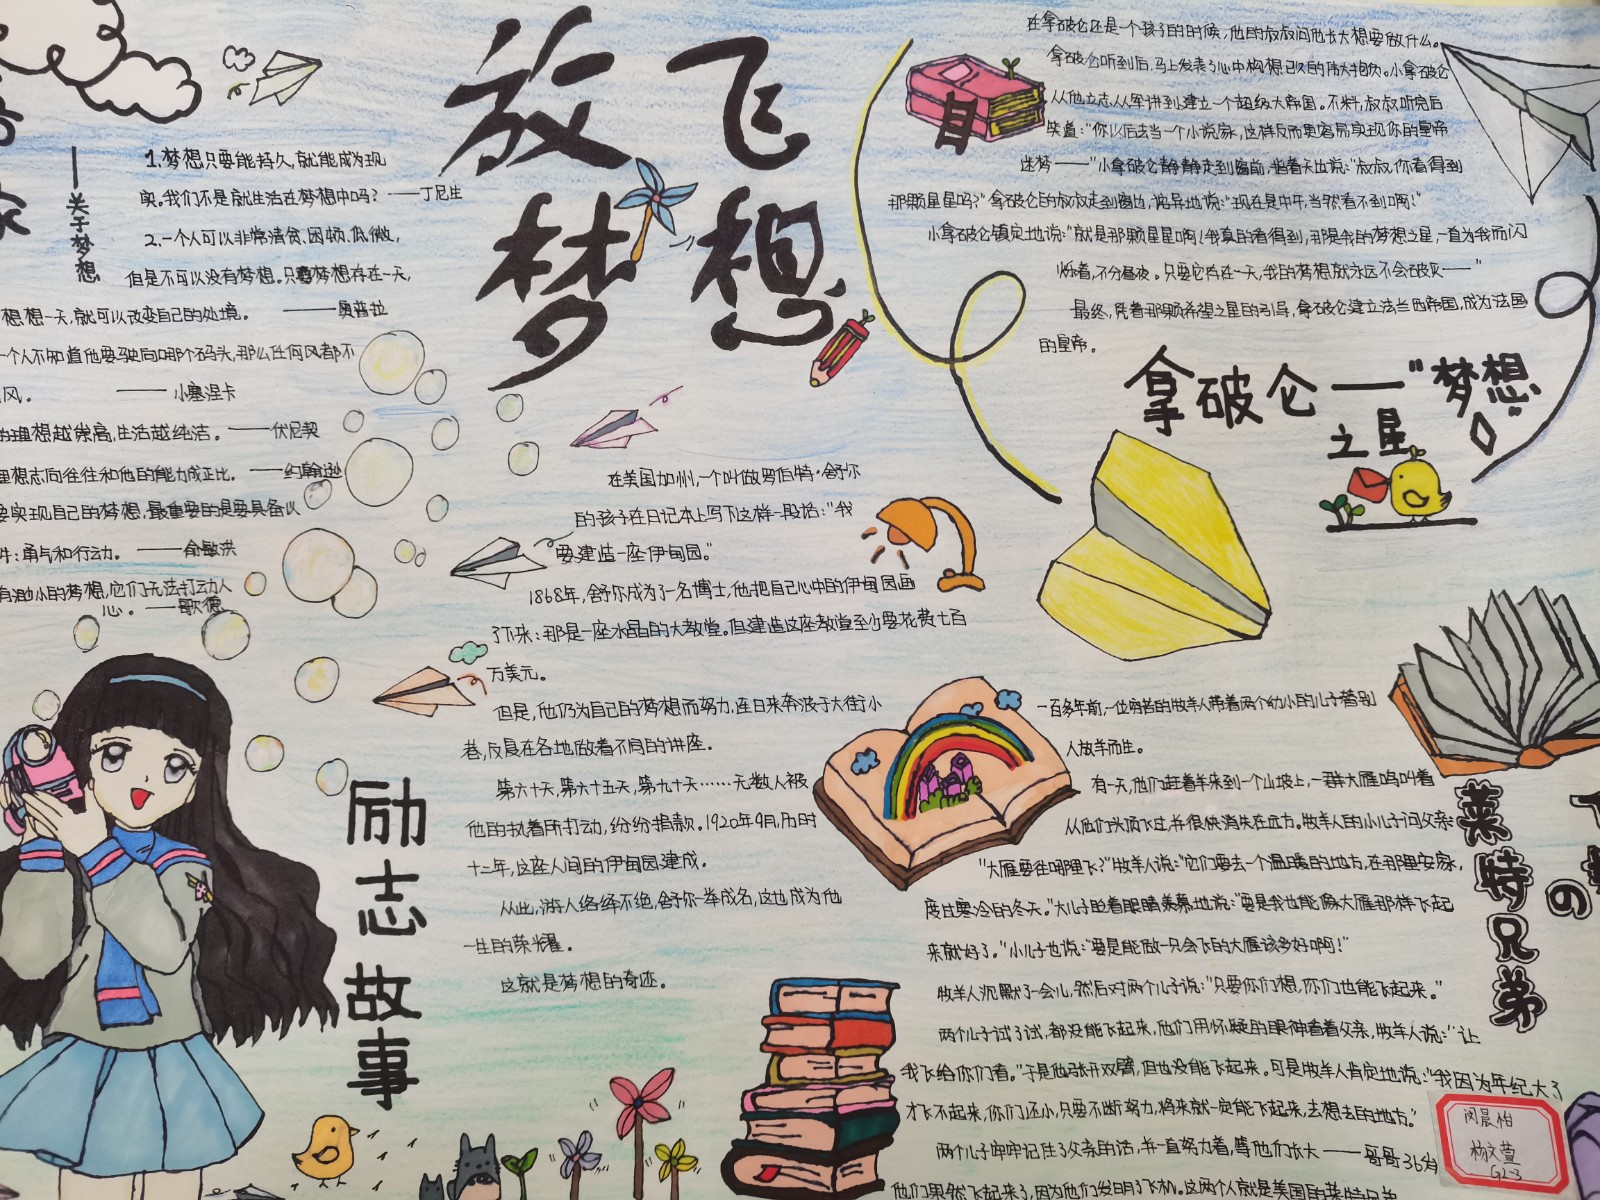 放飞
梦想
——关于梦想
1.梦想只要能持久,就能成为现
实。我们不是就生活在梦想中吗？——丁尼生
2.一个人可以非常清贫、困顿、低微,
但是不可以没有梦想。只要梦想存在一天,
想想一天,就可以改变自己的处境。——奥普拉
一个人不知道他要驶向哪个码头,那么任何风都不
风。——小塞涅卡
的理想越崇高,生活越纯洁。——伏尼契
理想志向往往和他的能力成正比。——约翰逊
要实现自己的梦想,最重要的是要具备以
件:勇气和行动。——俞敏洪
有渺小的梦想,它们无法打动人
心。——歌德
励志故事
在美国加州,一个叫做罗伯特·舒尔
的孩子在日记本上写下这样一段话:“我
要建造一座伊甸园。”
1868年,舒尔成为了一名博士,他把自己心中的伊甸园画
了下来:那是一座水晶的大教堂。但建造这座教堂至少要花费七百
万美元。
但是,他仍为自己的梦想而努力,连日来奔波于大街小
巷,反晨在各地做着不同的讲座。
第六十天,第六十五天,第九十天……无数人被
他的执着所打动,纷纷捐款。1920年9月,历时
十二年,这座人间的伊甸园建成。
从此,游人络绎不绝,舒尔一举成名,这也成为他
一生的荣耀。
这就是梦想的奇迹。
在拿破仑还是一个孩子的时候,他的叔叔问他长大想要做什么。
拿破仑听到后,马上发表了心中构想已久的伟大抱负。小拿破仑
从他立志从军讲到建立一个超级大帝国。不料,叔叔听完后
笑道:“你以后去当一个小说家,这样反而更容易实现你的皇帝
迷梦——”小拿破仑静静走到窗前,指着天边说:“叔叔,你看得到
那颗星星吗?”拿破仑的叔叔走到窗边,诧异地说:“现在是中午,当然看不到啊!”
小拿破仑镇定地说:“就是那颗星星啊!我真的看得到,那是我的梦想之星,一直为我而闪
烁着,不分昼夜。只要它存在一天,我的梦想就永远不会破灭——”
最终,凭着那颗希望之星的引导,拿破仑建立法兰西帝国,成为法国
的皇帝。
拿破仑——“梦想
之星”
一百多年前,一位穷苦的牧羊人带着两个幼小的儿子替别
人放羊而生。
有一天,他们赶着羊来到一个山坡上,一群大雁鸣叫着
从他们头顶飞过,并很快消失在远方。牧羊人的小儿子问父亲:
“大雁要往哪里飞?”牧羊人说:“它们要去一个温暖的地方,在那里安家,
度过寒冷的冬天。”大儿子眨着眼睛羡慕地说:“要是我也能像大雁那样飞起
来就好了。”小儿子也说:“要是能做一只会飞的大雁该多好啊!”
牧羊人沉默了一会儿,然后对两个儿子说:“只要你们想,你们也能飞起来。”
两个儿子试了试,都没能飞起来,他们用怀疑的眼神看着父亲,牧羊人说:“让
我飞给你们看。”于是他张开双臂,但也没能飞起来。可是牧羊人肯定地说:“我因为年纪大了
才飞不起来,你们还小,只要不断努力,将来就一定能飞起来,去想去的地方。”
两个儿子牢牢记住了父亲的话,并一直努力着,等他们长大——哥哥36岁
他们果然飞起来了,因为他们发明了飞机。这两个人就是美国的莱特兄弟
莱特兄弟
的
闵晨怡
杨文萱
G23